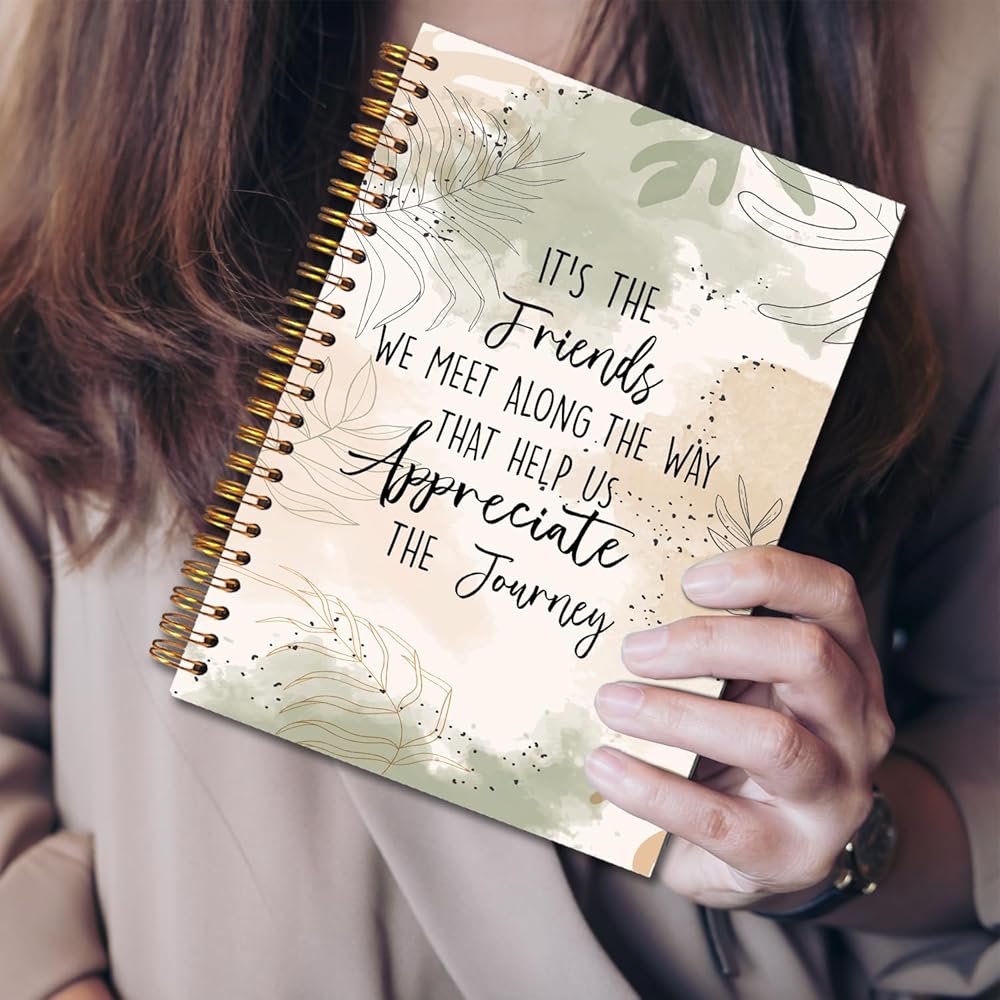 IT'S THE
Friends
WE MEET ALONG THE WAY
THAT HELP US
Appreciate
THE Journey